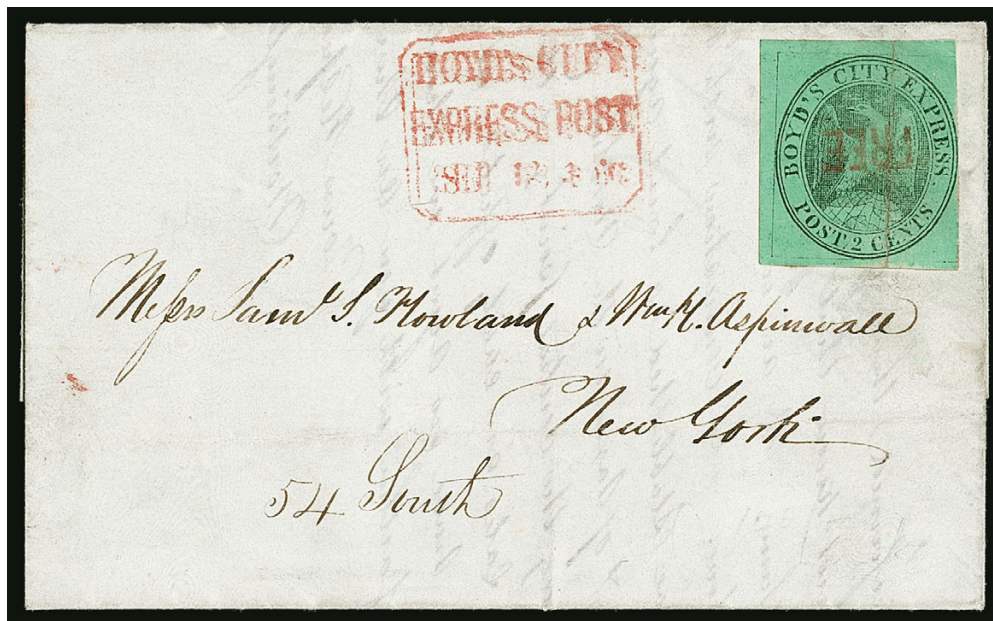 BOYD'S CITY
EXPRESS POST
SEP 12
BOYD'S CITY EXPRESS.
POST 2 CENTS
FREE
Messrs Saml S. Howland & Wm H. Aspinwall
New York
54 South